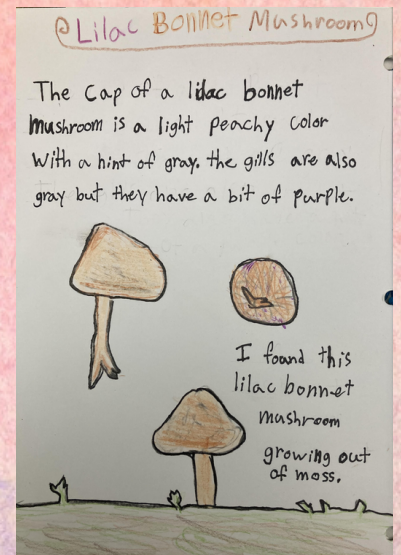 Lilac Bonnet Mushroom
The Cap of a lilac bonnet
mushroom is a light peachy color
with a hint of gray. the gills are also
gray but they have a bit of purple.
I found this
lilac bonnet
mushroom
growing out
of moss.